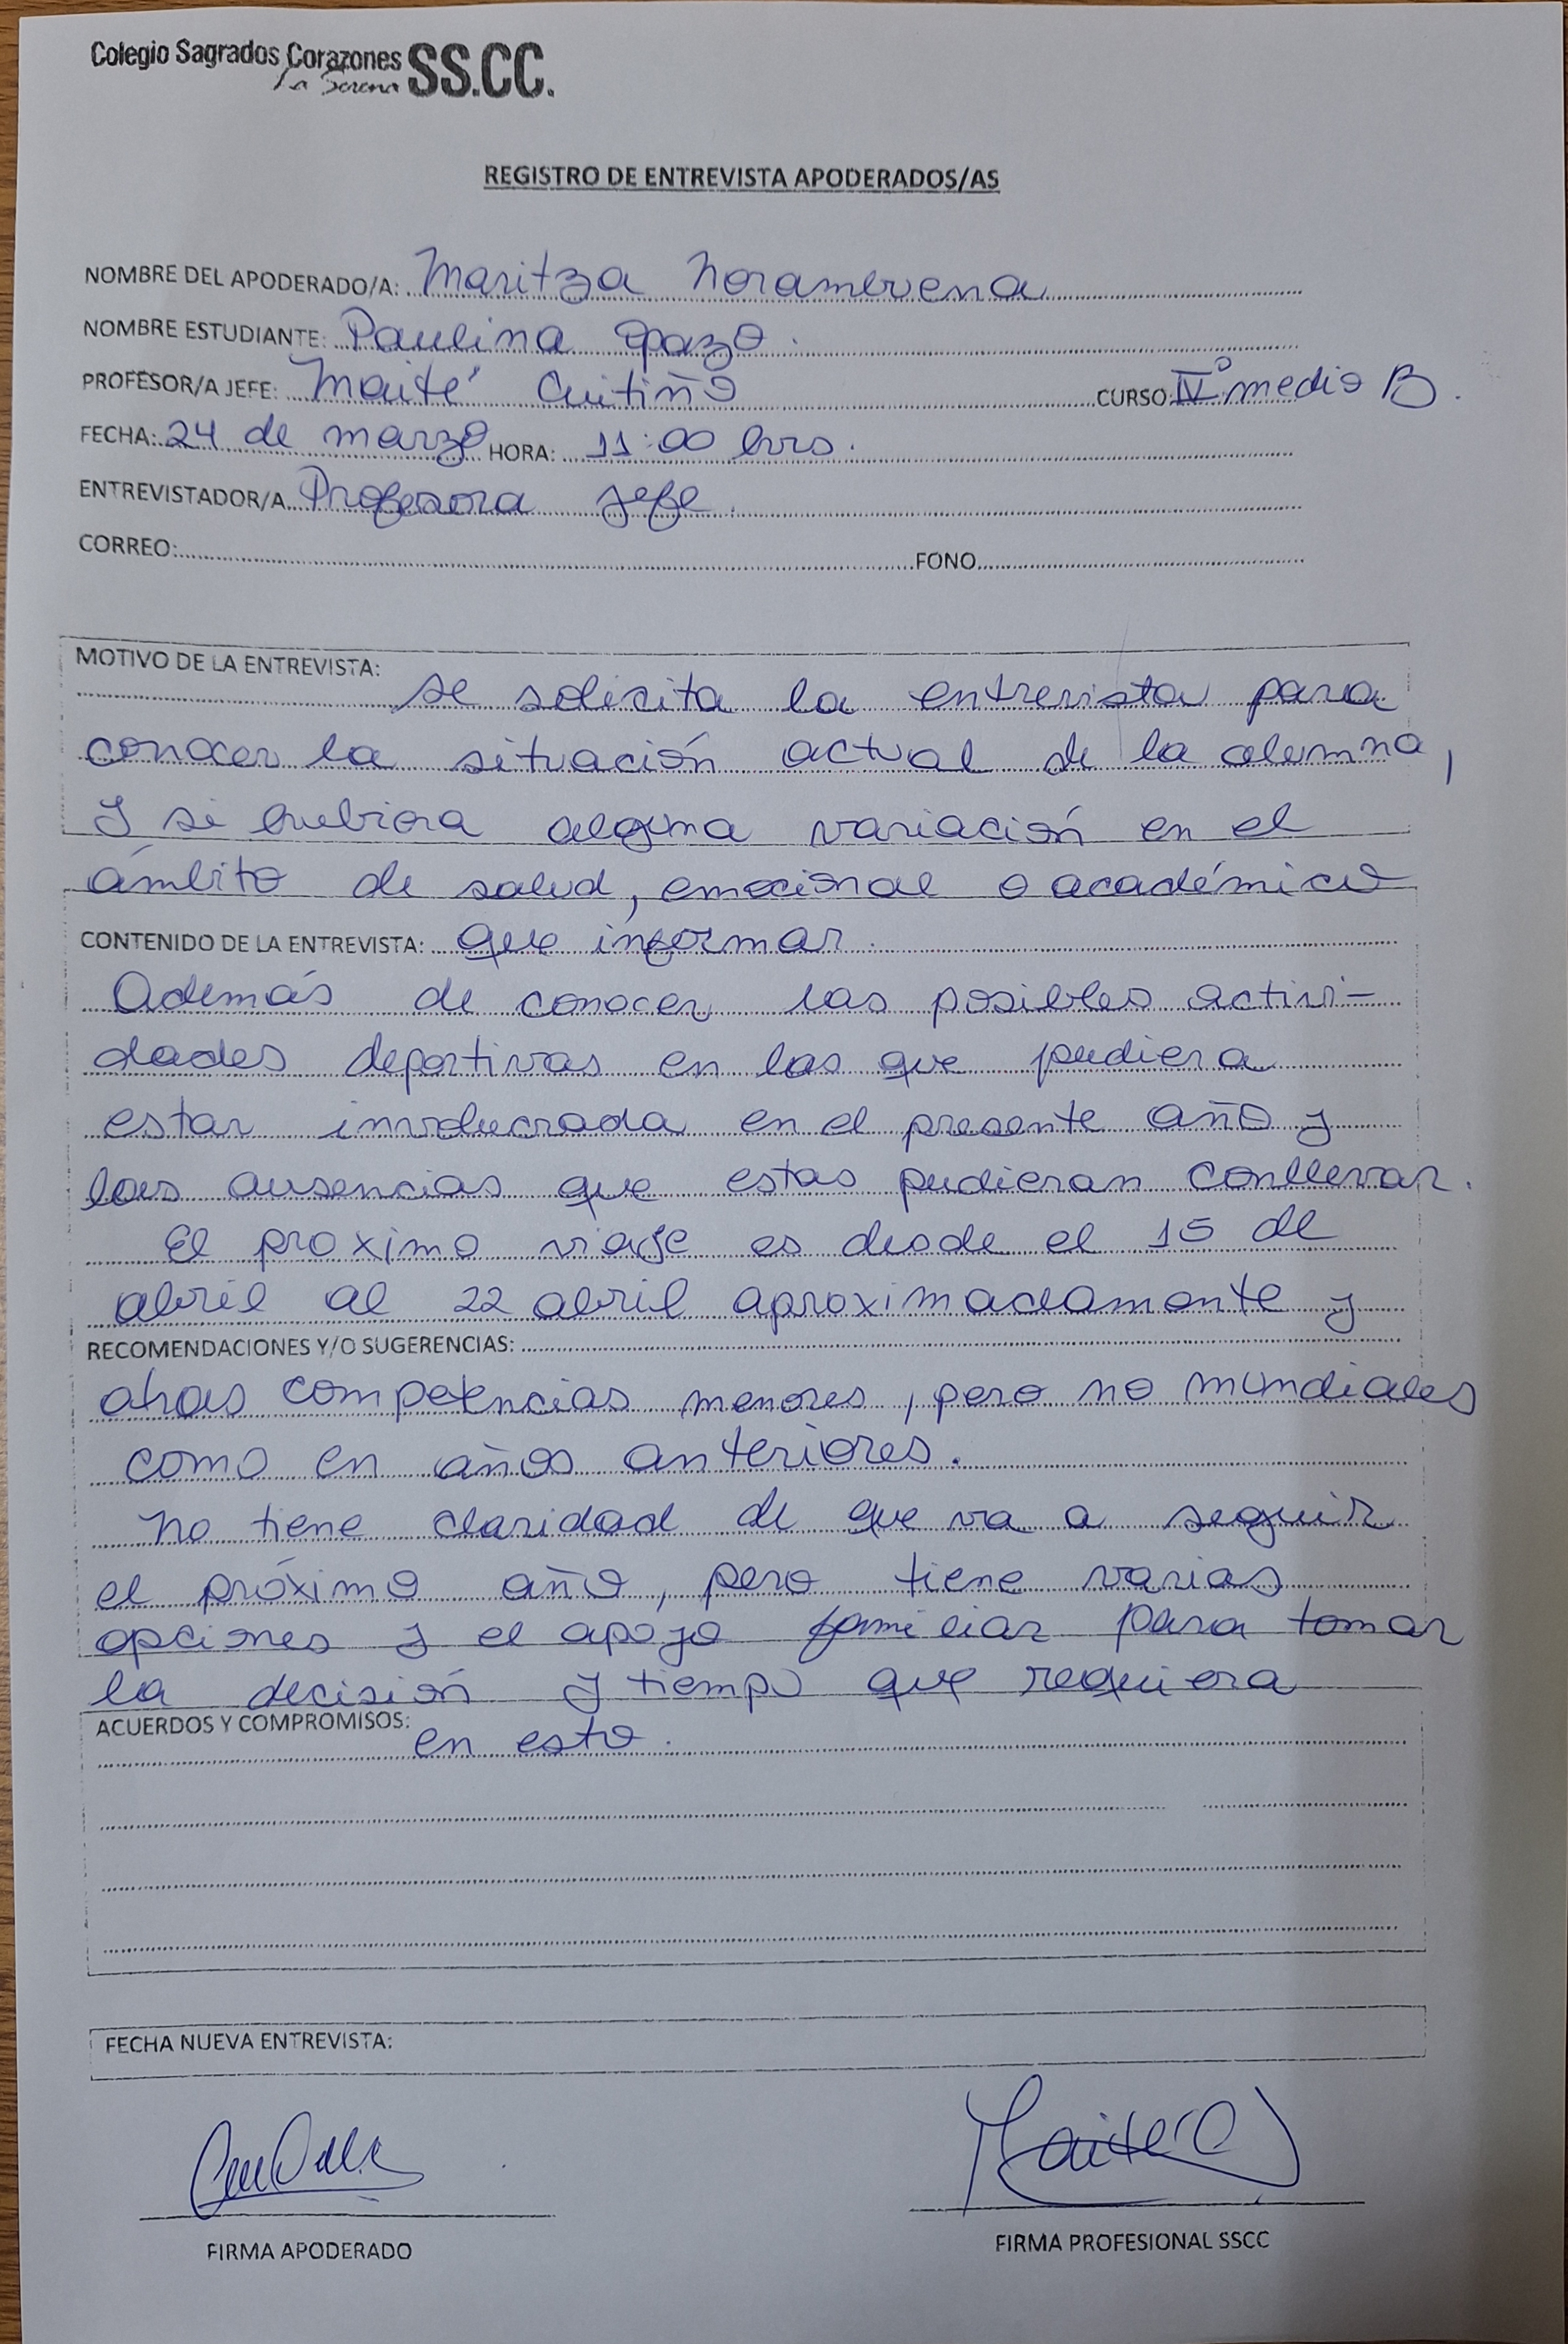 Colegio Sagrados Corazones SS.CC.
La Serena
REGISTRO DE ENTREVISTA APODERADOS/AS
NOMBRE DEL APODERADO/A: Maritza Norambuena
NOMBRE ESTUDIANTE: Paulina Opazo.
PROFESOR/A JEFE: Maité Cuitiño CURSO: IV° medio B.
FECHA: 24 de marzo HORA: 11:00 hrs.
ENTREVISTADOR/A Profesora jefe.
CORREO: FONO
MOTIVO DE LA ENTREVISTA:
Se solicita la entrevista para
conocer la situación actual de la alumna,
y si hubiera alguna variación en el
ámbito de salud, emocional o académico
CONTENIDO DE LA ENTREVISTA: que informar.
Además de conocer las posibles activi-
dades deportivas en las que pudiera
estar involucrada en el presente año y
las ausencias que estas pudieran conllevar.
El proximo viaje es desde el 15 de
abril al 22 abril aproximadamente y
RECOMENDACIONES Y/O SUGERENCIAS:
otras competencias menores, pero no mundiales
como en años anteriores.
No tiene claridad de que va a seguir
el próximo año, pero tiene varias
opciones y el apoyo familiar para tomar
la decisión y tiempo que requiera
ACUERDOS Y COMPROMISOS:
en esto.
FECHA NUEVA ENTREVISTA:
Maité C
FIRMA APODERADO
FIRMA PROFESIONAL SSCC